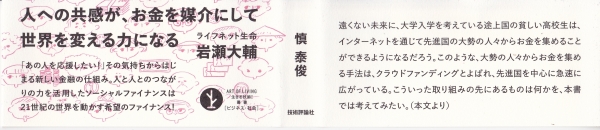 人への共感が、お金を媒介にして
世界を変える力になる
ライフネット生命
岩瀬大輔
「あの人を応援したい！」その気持ちからはじ
まる新しい金融の仕組み。人と人とのつなが
りの力を活用したソーシャルファイナンスは
21世紀の世界を動かす希望のファイナンス！
[ビジネス・社会]
慎 泰俊
技術評論社
遠くない未来に、大学入学を考えている途上国の貧しい高校生は、
インターネットを通じて先進国の大勢の人々からお金を集めること
ができるようになるだろう。このような、大勢の人々からお金を集め
る手法は、クラウドファンディングとよばれ、先進国を中心に急速に
広がっている。こういった取り組みの先にあるものは何かを、本書
では考えてみたい。（本文より）